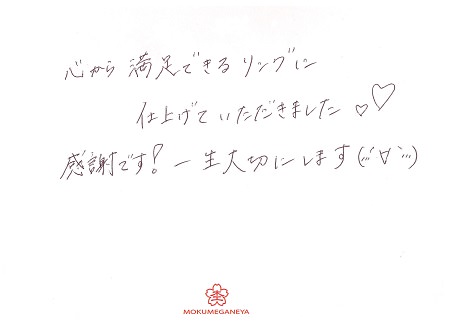 心から満足できるリングに
仕上げていただきました♡♡
感謝です！一生大切にします(*´∀`*)
MOKUMEGANEYA